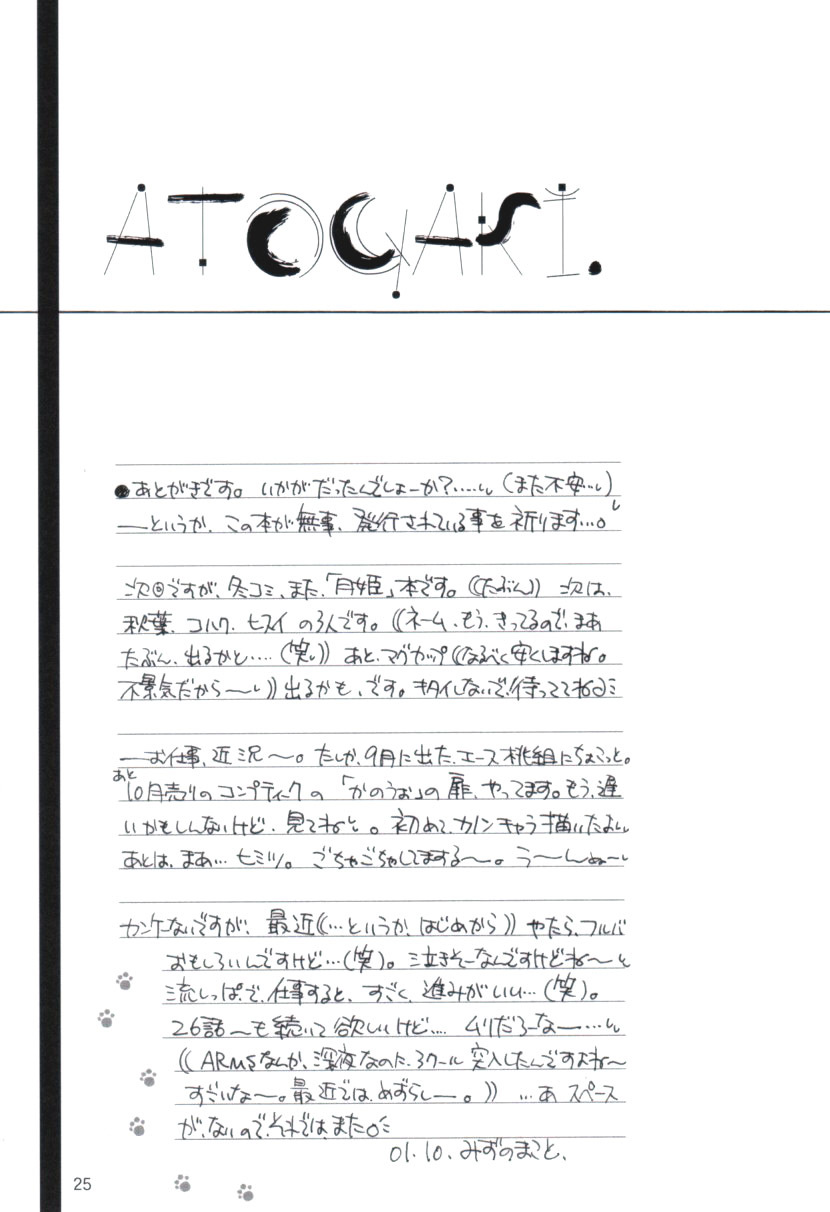 ATOGAKI.
●あとがきです。いかがだったんでしょーか?……(また不安…)
―というか、この本が無事、発行されている事を祈ります…。
次回ですが、冬コミ、また、「月姫」本です。((たぶん)) 次は、
秋葉、コハク、ヒスイの3人です。((ネーム、もう、きってるので、まあ
たぶん、出るかと…(笑)) あと、マグカップ((なるべく安くしますね。
不景気だから〜)) 出るかも、です。キタイしないで、待っててね
―お仕事、近況〜。たしか、9月に出た、エース桃組にちょこっと。
あと
10月売りのコンプティークの「かのうぉ」の扉、やってます。もう、遅
いかもしんないけど、見てねと。初めて、カノンキャラ描いたよ
あとは、まあ…ヒミツ。ごちゃごちゃしてまする〜。う〜んぬ〜
カンケーないですが、最近((…というか、はじめから)) やたら、フルバ
おもしろいんですけど…(笑)。泣きそーなんですけどね〜
流しっぱで、仕事すると、すごく、進みがいい…(笑)。
26話〜も続いて欲しいけど…. ムリだろーなー…
((ARMSなんか、深夜なのに、3クール突入したんですよね〜
すごいなー。最近では、めずらしー。)) …あ スペース
が、ないので、それでは、また。
01.10. みずのまこと、
25